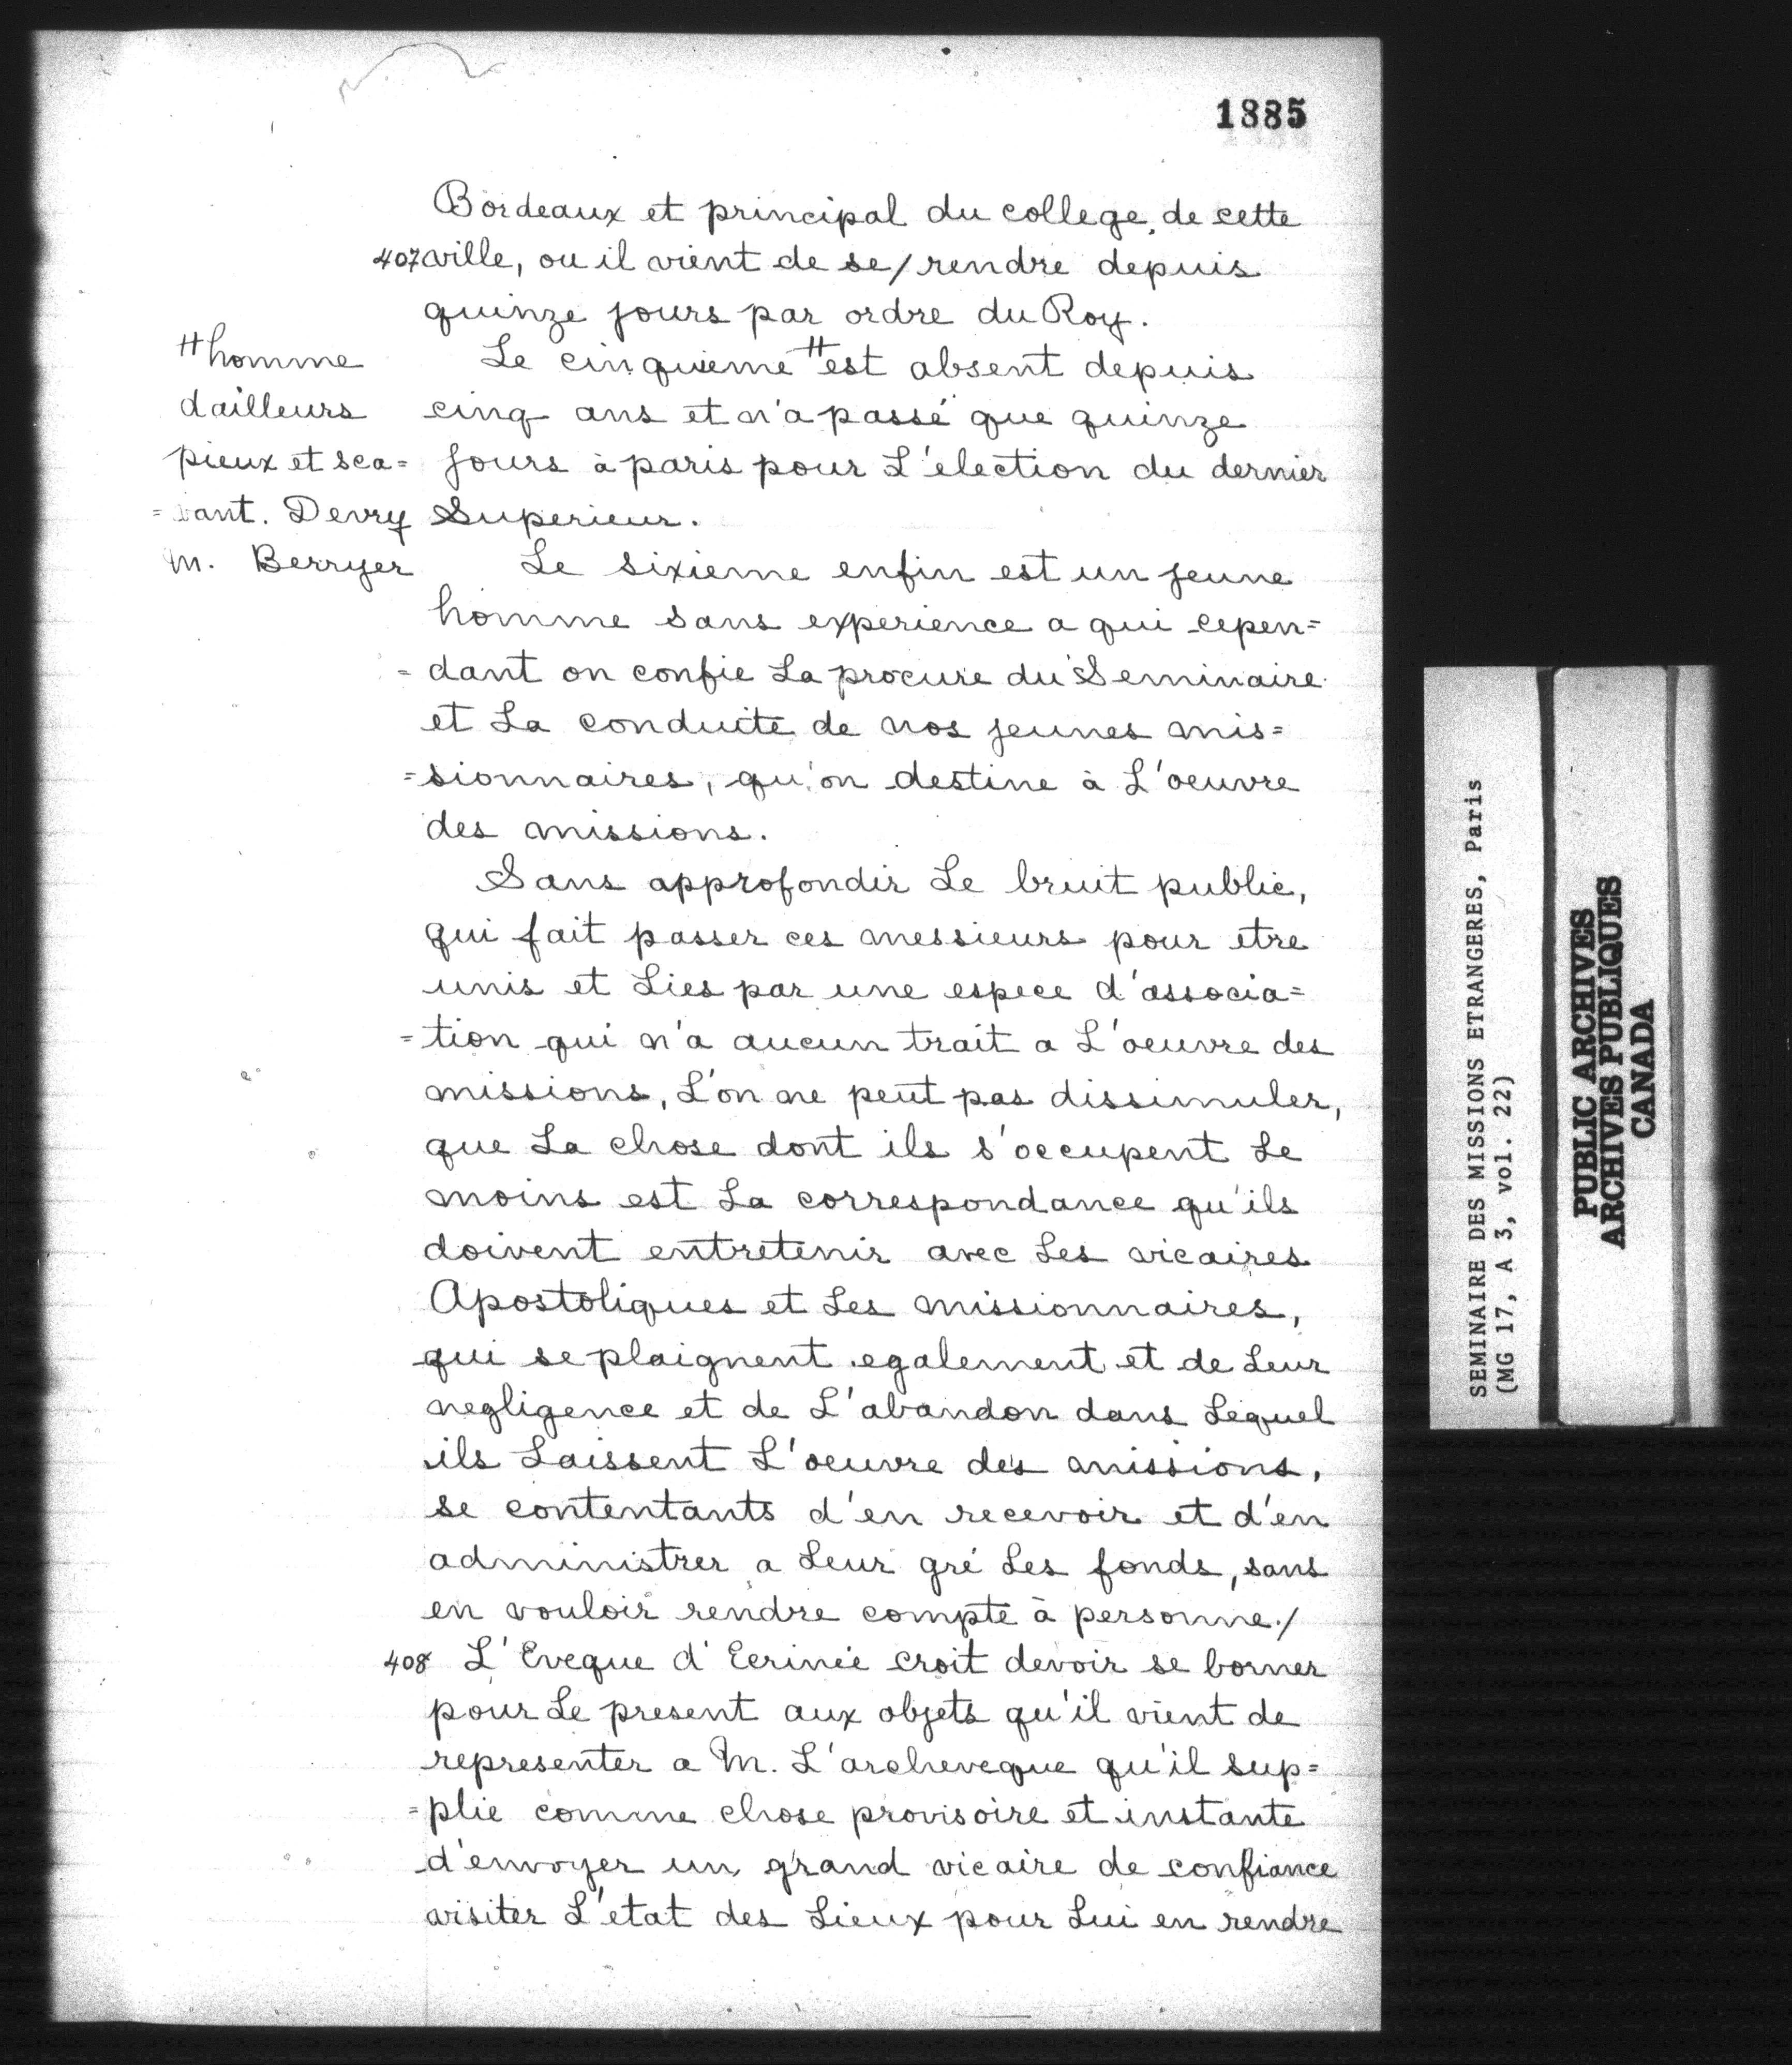 1885
Bordeaux et principal du college de cette
407 ville, ou il vient de se/rendre depuis
quinze jours par ordre du Roy.
Le cinquieme # est absent depuis
cinq ans et n'a passé que quinze
jours à paris pour L'election du dernier
Superieur.
# homme
dailleurs
pieux et sca=
=vant. Devry
M. Berryer
Le sixieme enfin est un jeune
homme sans experience a qui cepen=
=dant on confie La procure du Seminaire
et La conduite de nos jeunes mis=
=sionnaires, qu'on destine à L'oeuvre
des missions.
Sans approfondir Le bruit public,
qui fait passer ces messieurs pour etre
unis et Lies par une espece d'associa=
=tion qui n'a aucun trait a L'oeuvre des
missions, L'on ne peut pas dissimuler,
que La chose dont ils s'occupent Le
moins est La correspondance qu'ils
doivent entretenir avec Les vicaires
Apostoliques et Les missionnaires,
qui se plaignent egalement et de Leur
negligence et de L'abandon dans Lequel
ils Laissent L'oeuvre des missions,
se contentants d'en recevoir et d'en
administrer a Leur gré Les fonds, sans
en vouloir rendre compte à personne./
408 L'Eveque d'Ecrinée croit devoir se borner
pour Le present aux objets qu'il vient de
representer a M. L'archeveque qu'il sup=
=plie comme chose provisoire et instante
d'envoyer un grand vicaire de confiance
visiter L'etat des Lieux pour Lui en rendre
SEMINAIRE DES MISSIONS ETRANGERES, Paris
(MG 17, A 3, vol. 22)
PUBLIC ARCHIVES
ARCHIVES PUBLIQUES
CANADA